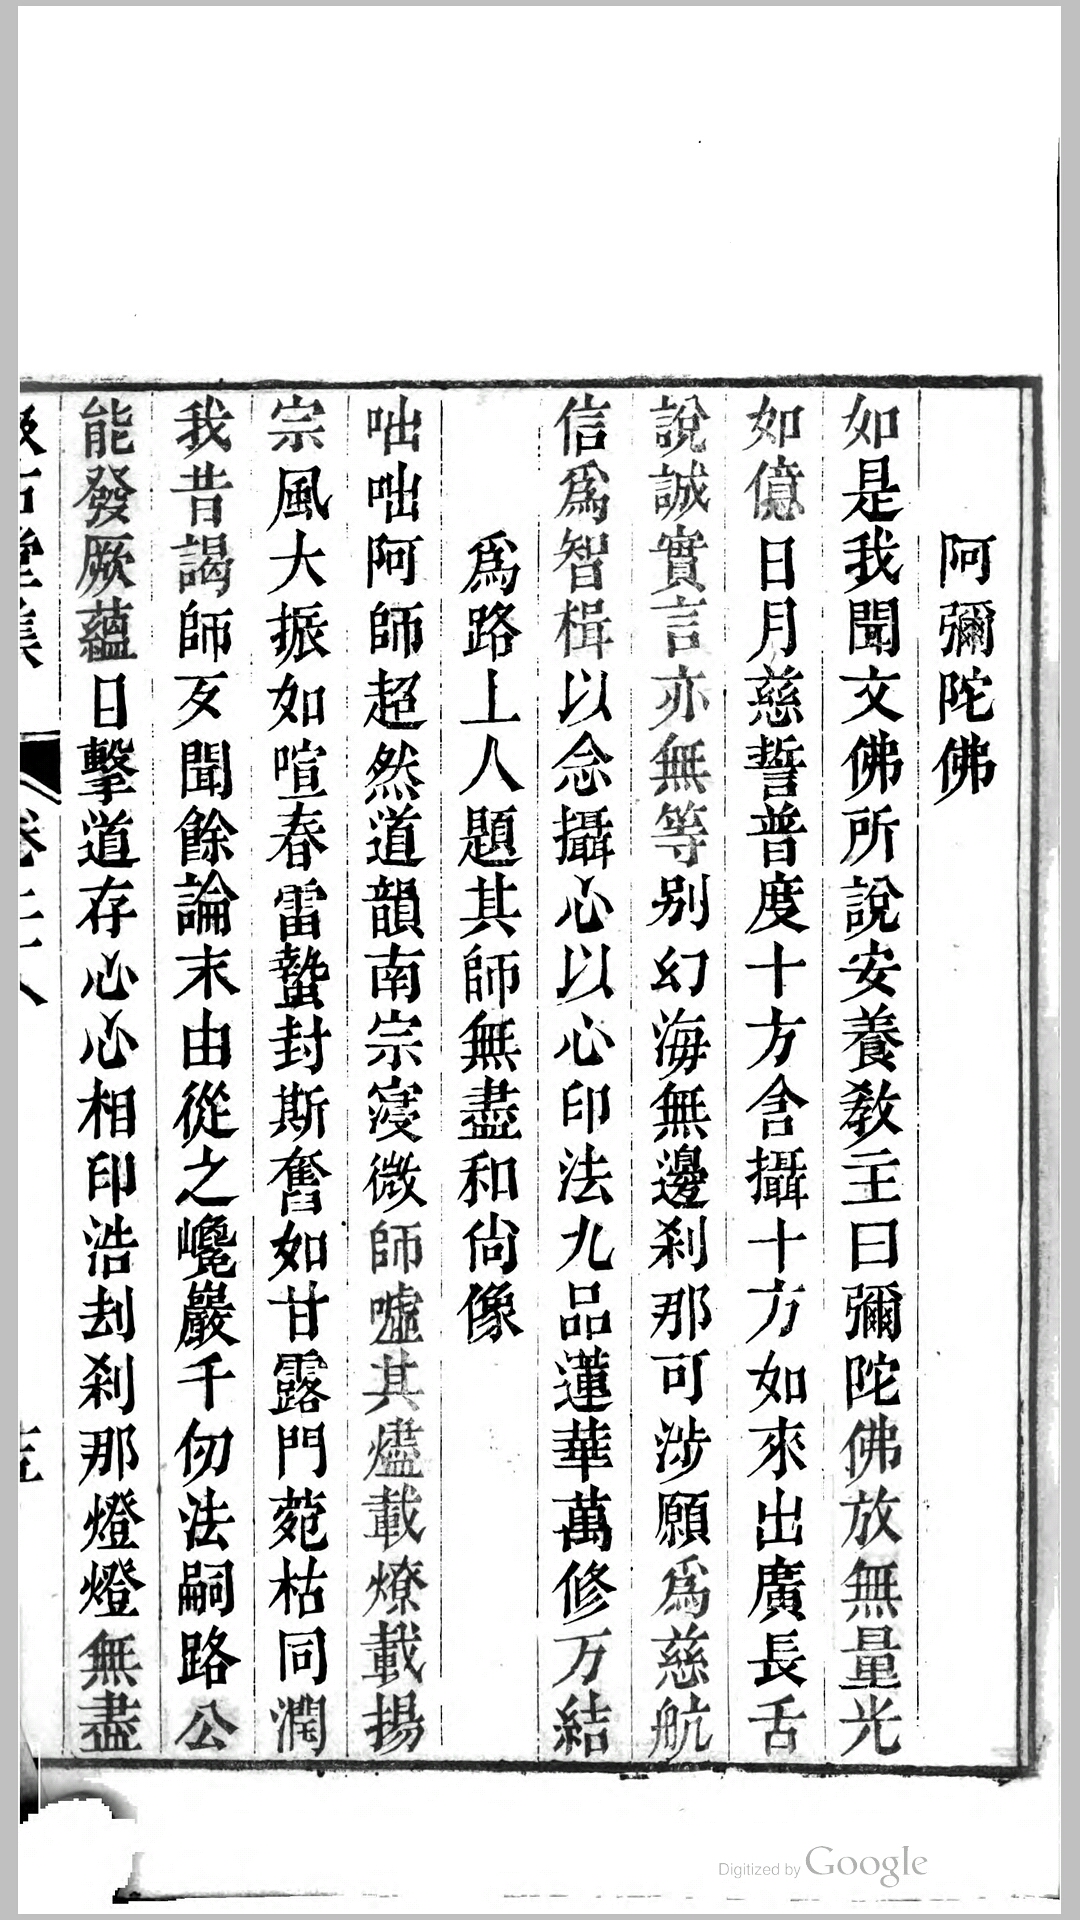 阿彌陀佛
如是我聞文佛所說安養教主曰彌陀佛放無量光
如億日月慈誓普度十方含攝十方如來出廣長舌
說誠實言亦無等別幻海無邊剎那可涉願爲慈航
信爲智楫以念攝心以心印法九品蓮華萬修万結
爲路上人題其師無盡和尙像
咄咄阿師超然道韻南宗寖微師噓其燼載燎載揚
宗風大振如喧春雷蟄封斯奮如甘露門菀枯同潤
我昔謁師亥聞餘論末由從之巉巖千仞法嗣路公
能發厥蘊日擊道存心心相印浩刦剎那燈燈無盡
Digitized by Google